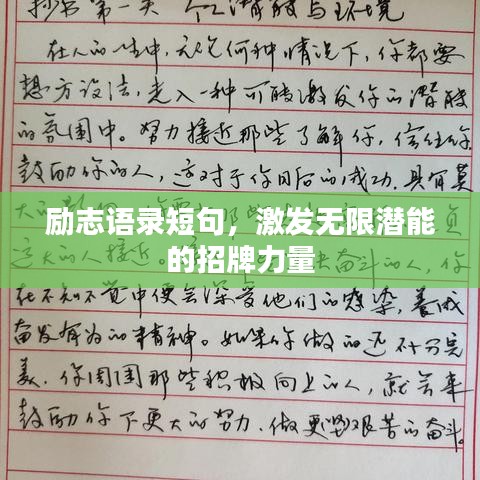 抄书第一页 个人潜能与环境
在人的一生中，无论何种情况下，你都要
想方设法，走入一种可能激发你的潜能
的氛围中。努力接近那些了解你，信任你，
鼓励你的人，这对于你日后的成功，具有莫
大的
励志语录短句，激发无限潜能
的招牌力量
人接近，奋斗的人，你
在不知不觉中便会深受他们的感染，养成
奋发有为的精神。如果你做的还不十分完
美，你周围那些积极向上的人，就会来
鼓励你下更大的努力，做更坚艰苦的奋斗。